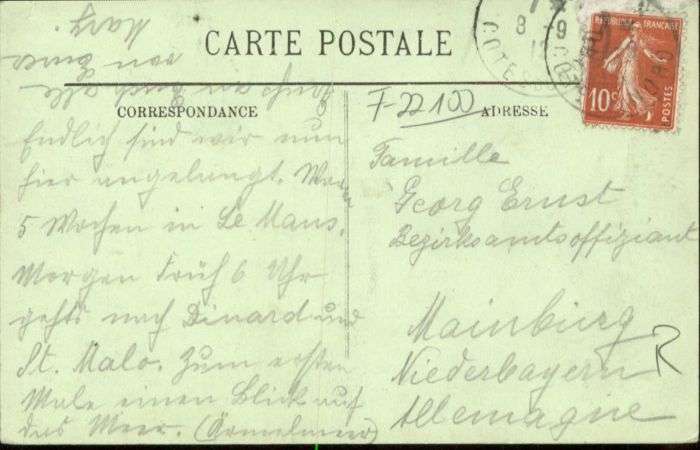 CARTE POSTALE
CORRESPONDANCE
ADRESSE
F-22100
8 -9
COTES
RÉPUBLIQUE FRANÇAISE
10c
POSTES
Endlich sind wir nun
hier angelangt. Waren
5 Wochen in Le Mans.
Morgen Früh 6 Uhr
gehts nach Dinard und
St. Malo. Zum ersten
Male einen Blick auf
das Meer. (Ärmelmeer)
alle
von Eurem
Marz.
Famille
Georg Ernst
Bezirksamtsoffiziant
Mainburg
Niederbayern
Allemagne
R